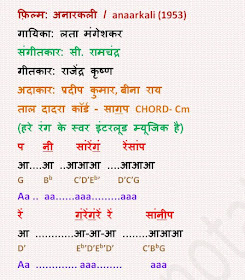 फ़िल्म: अनारकली / anaarkali (1953)
गायिका: लता मंगेशकर
संगीतकार: सी. रामचंद्र
गीतकार: राजेंद्र कृष्ण
अदाकार: प्रदीप कुमार, बीना राय
ताल दादरा कॉर्ड - सागप CHORD- Cm
(हरे रंग के स्वर इंटरलूड म्यूजिक है)
प नी सांरेंगं रेंसांप
आ....आ ..आआआ ....आआआआ
G Bᵇ C'D'Eᵇ' D'C'G
Aa .. aa......aaa..........aaa
रें गंरेंगंरें रें सांनीप
आ ............आ-आ-आ ........आआआ
D' Eᵇ'D'Eᵇ'D' C'BᵇG
Aa .............. aaa........ aaa